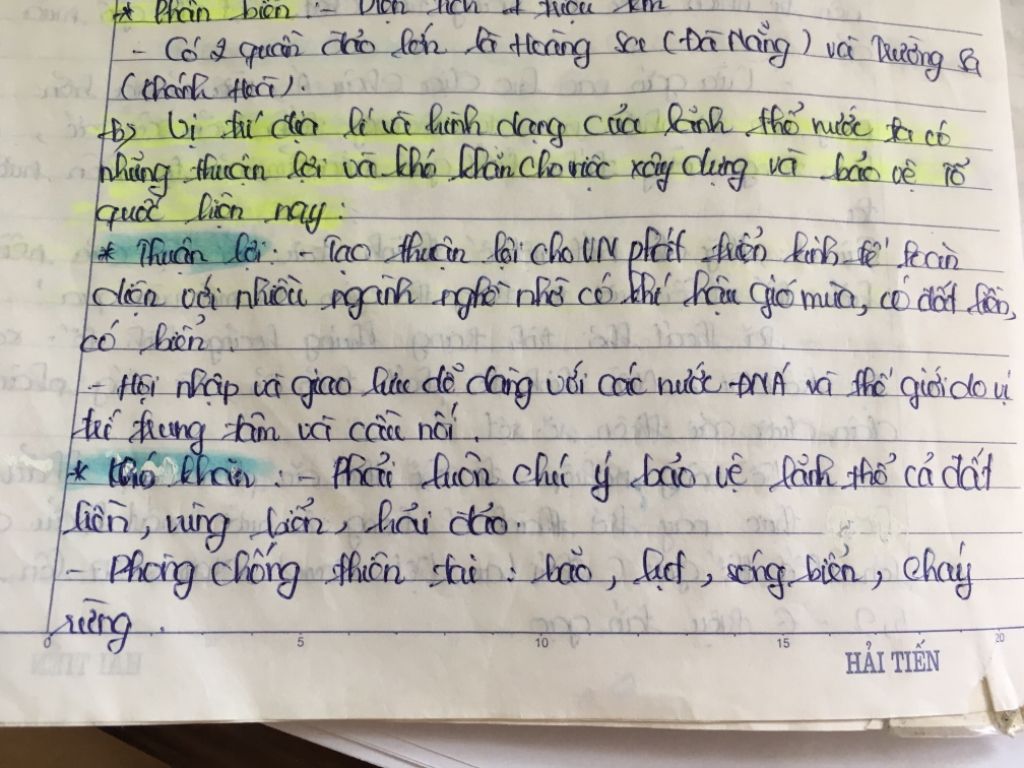 * Phần biển : - Diện tích 1 triệu km
- Có 2 quần đảo lớn là Hoàng Sa (Đà Nẵng) và Trường Sa
(Khánh Hoà).
b> Vị trí địa lí và hình dạng của lảnh thổ nước ta có
những thuận lợi và khó khăn cho việc xây dựng và bảo vệ Tổ
quốc hiện nay :
* Thuận lợi : - Tạo thuận lợi cho VN phát triển kinh tế toàn
diện với nhiều ngành nghề nhờ có khí hậu gió mùa, có đất liền,
có biển.
- Hội nhập và giao lưu dể dàng với các nước ĐNÁ và thế giới do vị
trí trung tâm và cầu nối .
* Khó khăn : - Phải luôn chú ý bảo vệ lảnh thổ cả đất
liền, vùng biển, hải đảo.
- Phòng chống thiên tai : bảo, lụt, sóng biển, cháy
rừng .
0 5 10 15 20
HẢI TIẾN